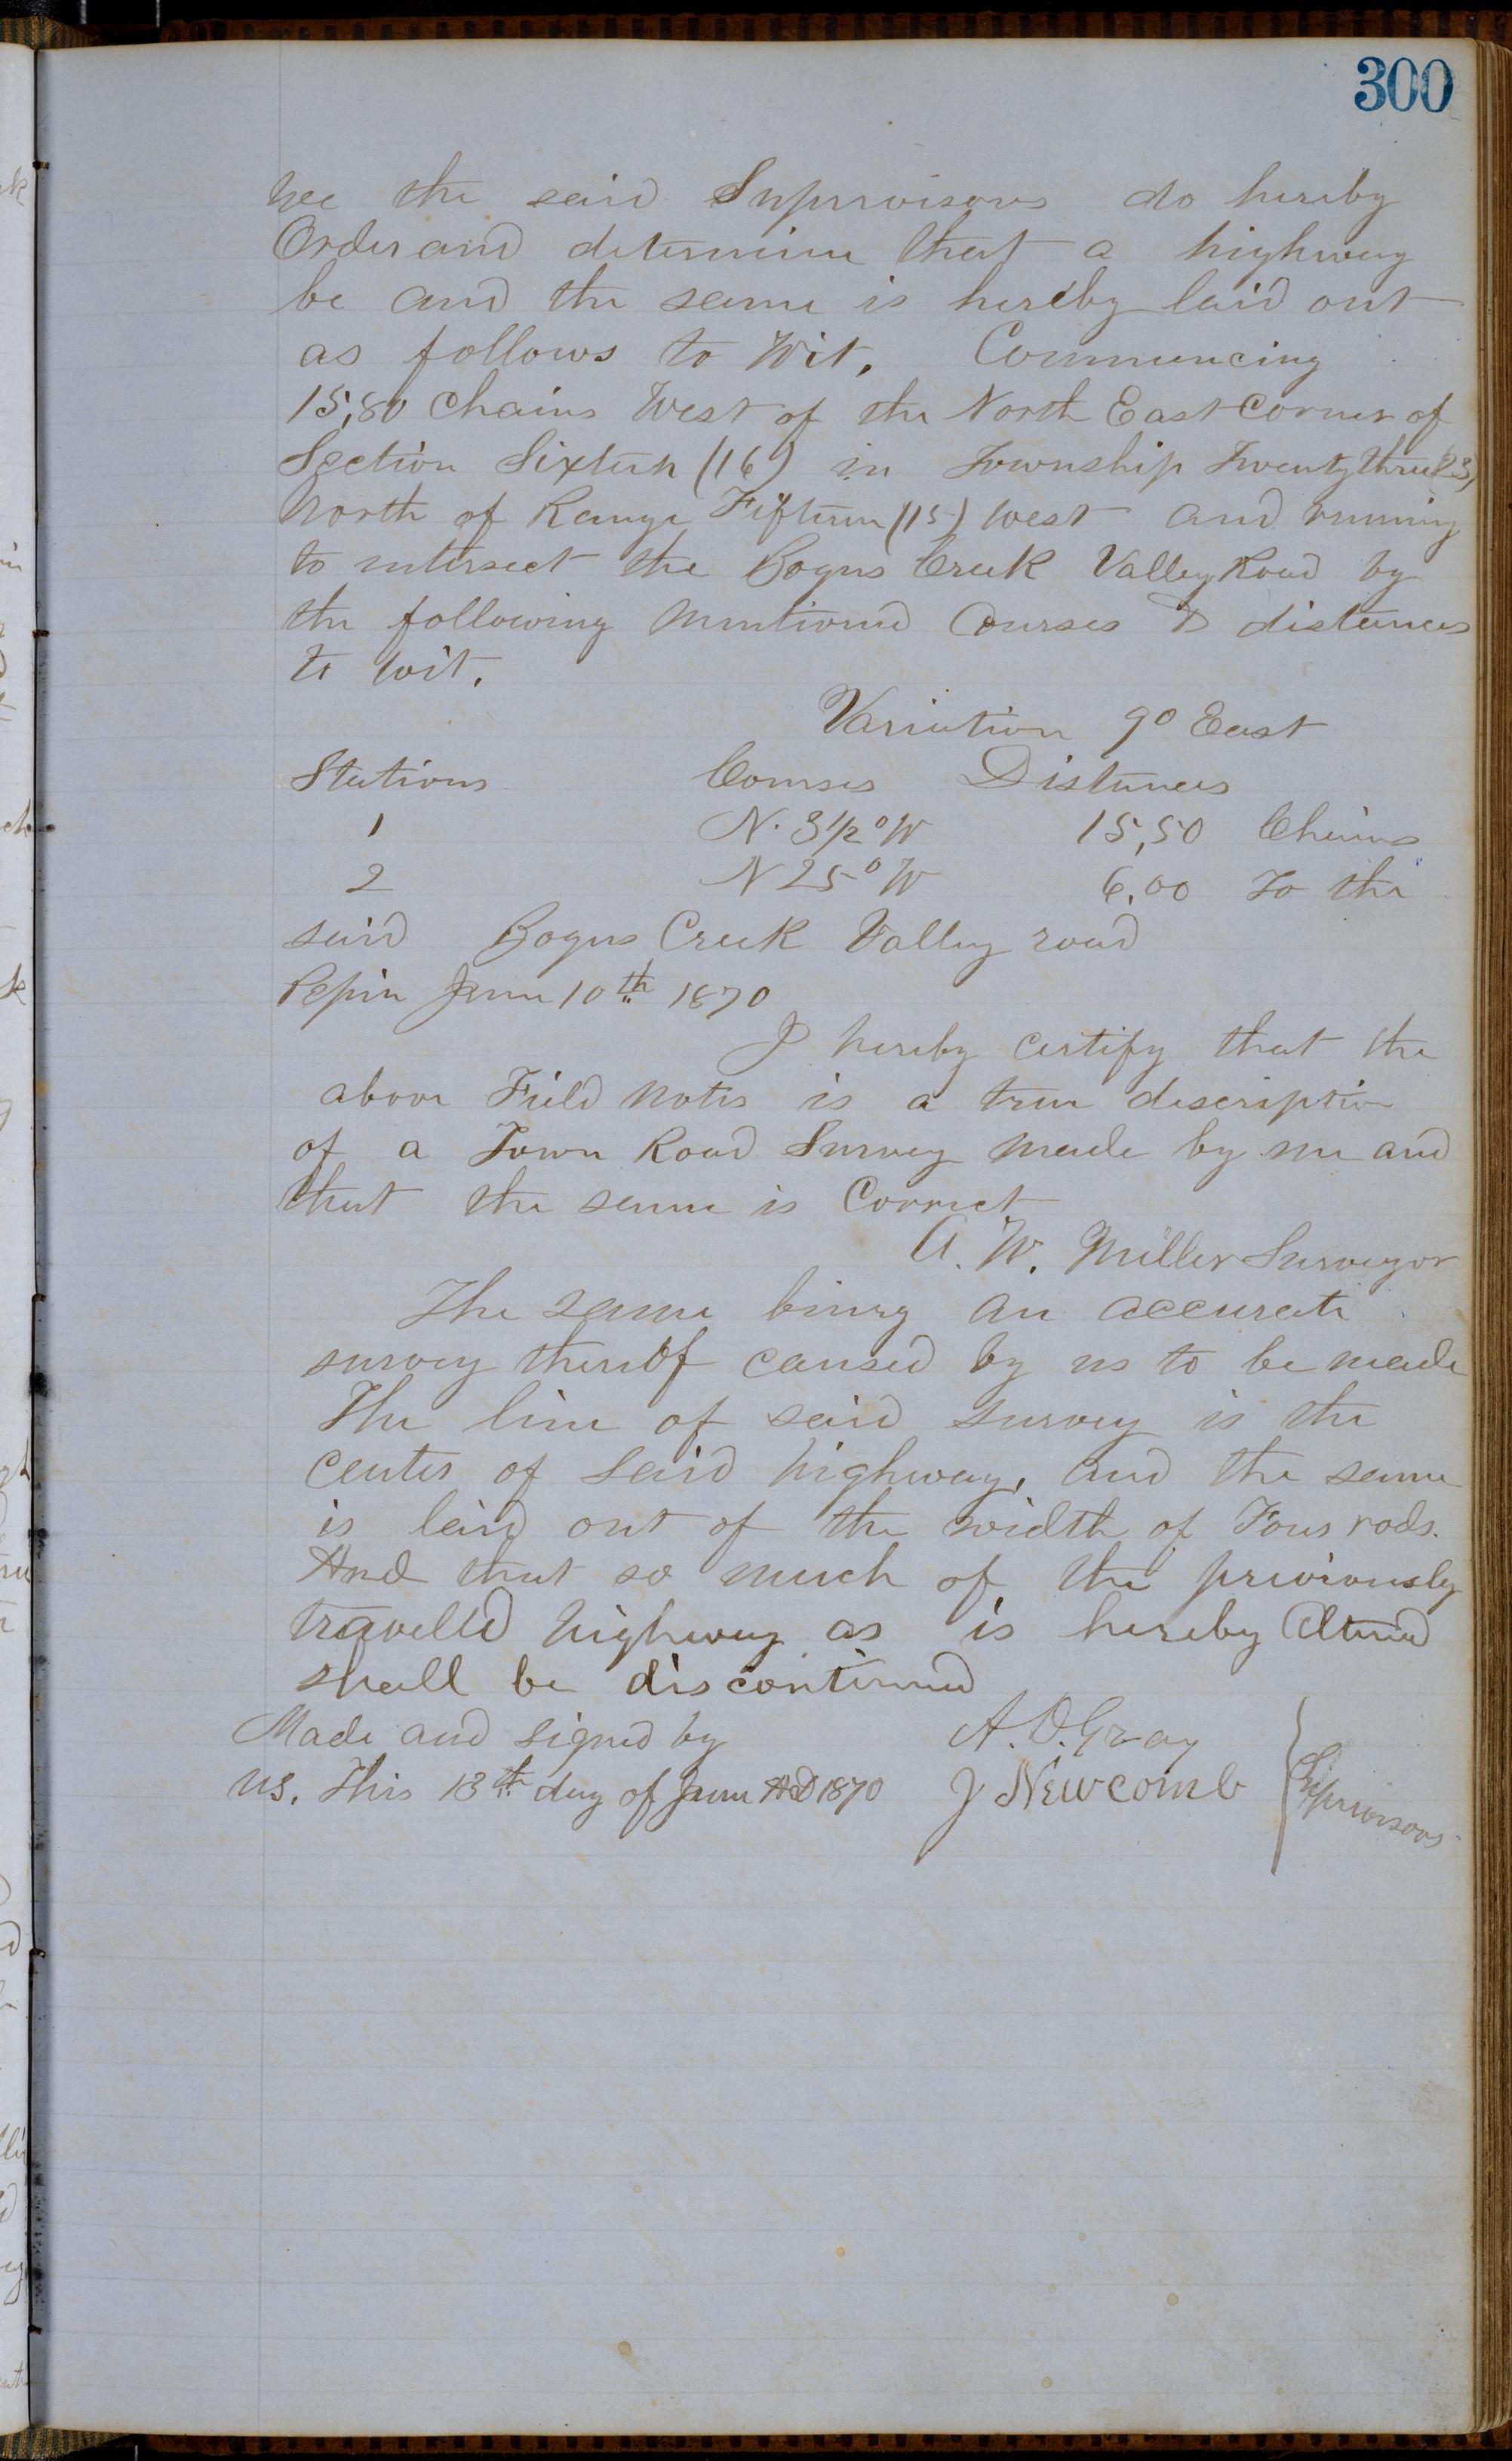 300
We the said Supervisors do hereby
Order and determine that a highway
be and the same is hereby laid out
as follows to Wit. Commencing
15,80 Chains West of the North East Corner of
Section Sixteen (16) in Township Twenty three (23)
North of Range Fifteen (15) West and running
to intersect the Bogus Creek Valley Road by
the following mentioned Courses & distances
to wit.
Variation 9° East
Stations Courses Distances
1 N. 3 1/2° W 15,50 Chains
2 N 25° W 6,00 To the
said Bogus Creek Valley road
Pepin June 10th 1870
I hereby certify that the
above Field Notes is a true description
of a Town Road Survey made by me and
that the same is Correct
A. W. Miller Surveyor
The same being an accurate
survey thereof caused by us to be made
The line of said survey is the
center of said highway, and the same
is laid out of the width of Four rods.
And that so much of the previously
travelled highway as is hereby Altered
shall be discontinued
Made and signed by A. D. Gray
us. This 13th day of June AD 1870 J Newcomb Supervisors